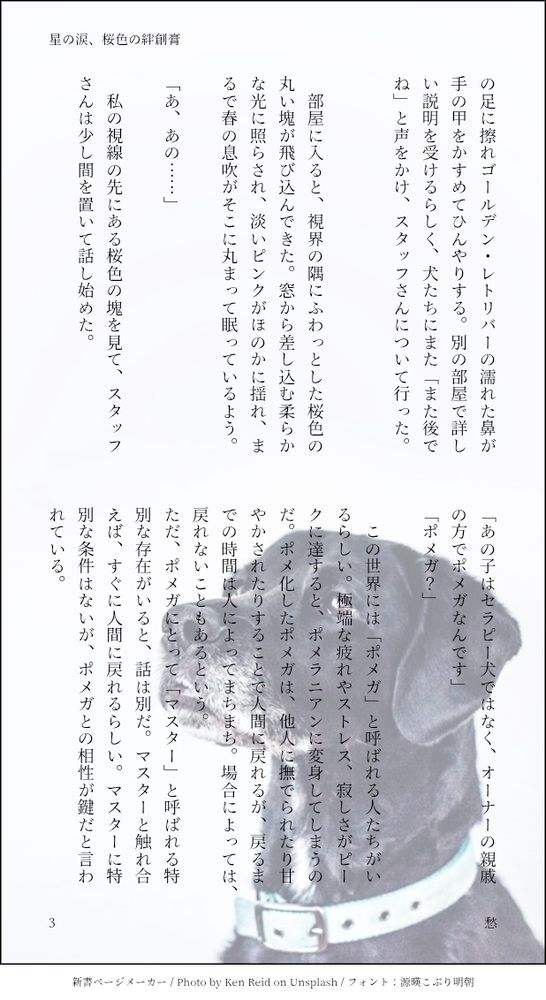 星の涙、桜色の絆創膏
の足に擦れゴールデン・レトリバーの濡れた鼻が
手の甲をかすめてひんやりする。別の部屋で詳し
い説明を受けるらしく、犬たちにまた「また後で
ね」と声をかけ、スタッフさんについて行った。
部屋に入ると、視界の隅にふわっとした桜色の
丸い塊が飛び込んできた。窓から差し込む柔らか
な光に照らされ、淡いピンクがほのかに揺れ、ま
るで春の息吹がそこに丸まって眠っているよう。
「あ、あの……」
私の視線の先にある桜色の塊を見て、スタッフ
さんは少し間を置いて話し始めた。
「あの子はセラピー犬ではなく、オーナーの親戚
の方でポメガなんです」
「ポメガ？」
この世界には「ポメガ」と呼ばれる人たちがい
るらしい。極端な疲れやストレス、寂しさがピー
クに達すると、ポメラニアンに変身してしまうの
だ。ポメ化したポメガは、他人に撫でられたり甘
やかされたりすることで人間に戻れるが、戻るま
での時間は人によってまちまち。場合によっては、
戻れないこともあるという。
ただ、ポメガにとって「マスター」と呼ばれる特
別な存在がいると、話は別だ。マスターと触れ合
えば、すぐに人間に戻れるらしい。マスターに特
別な条件はないが、ポメガとの相性が鍵だと言わ
れている。
3
愁
新書ページメーカー / Photo by Ken Reid on Unsplash / フォント：源暎こぶり明朝